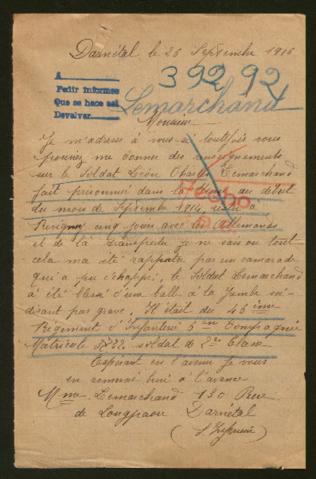 Darnétal le 25 Septembre 1916
A
Pedir informes
Que se hace asi
Devolver
39292
Lemarchand
Monsieur
Je m'adresse à vous si toutefois vous
pouvez me donner des renseignements
sur le Soldat Léon Charles Lemarchand
fait prisonnié dans la au début
du mois de Septembre 1914 resté à
Juvigny jours avec les Allemands
et de la transferer je ne sais ou tout
cela ma été rapporté par un camarade
qui a pu échappé, le Soldat Lemarchand
à été blessé d'une ball à la Jambe
disant pas grave, Il était du 45 ième
Régiment d'Infanterie 5 em Compagnie
Matricule soldat de 2e Classe
Espérant en l'avenir Je vous
en remercie bien à l'avance
Mme Lemarchand 130 Rue
de Longpaon Darnétal
(S. Inférieure)